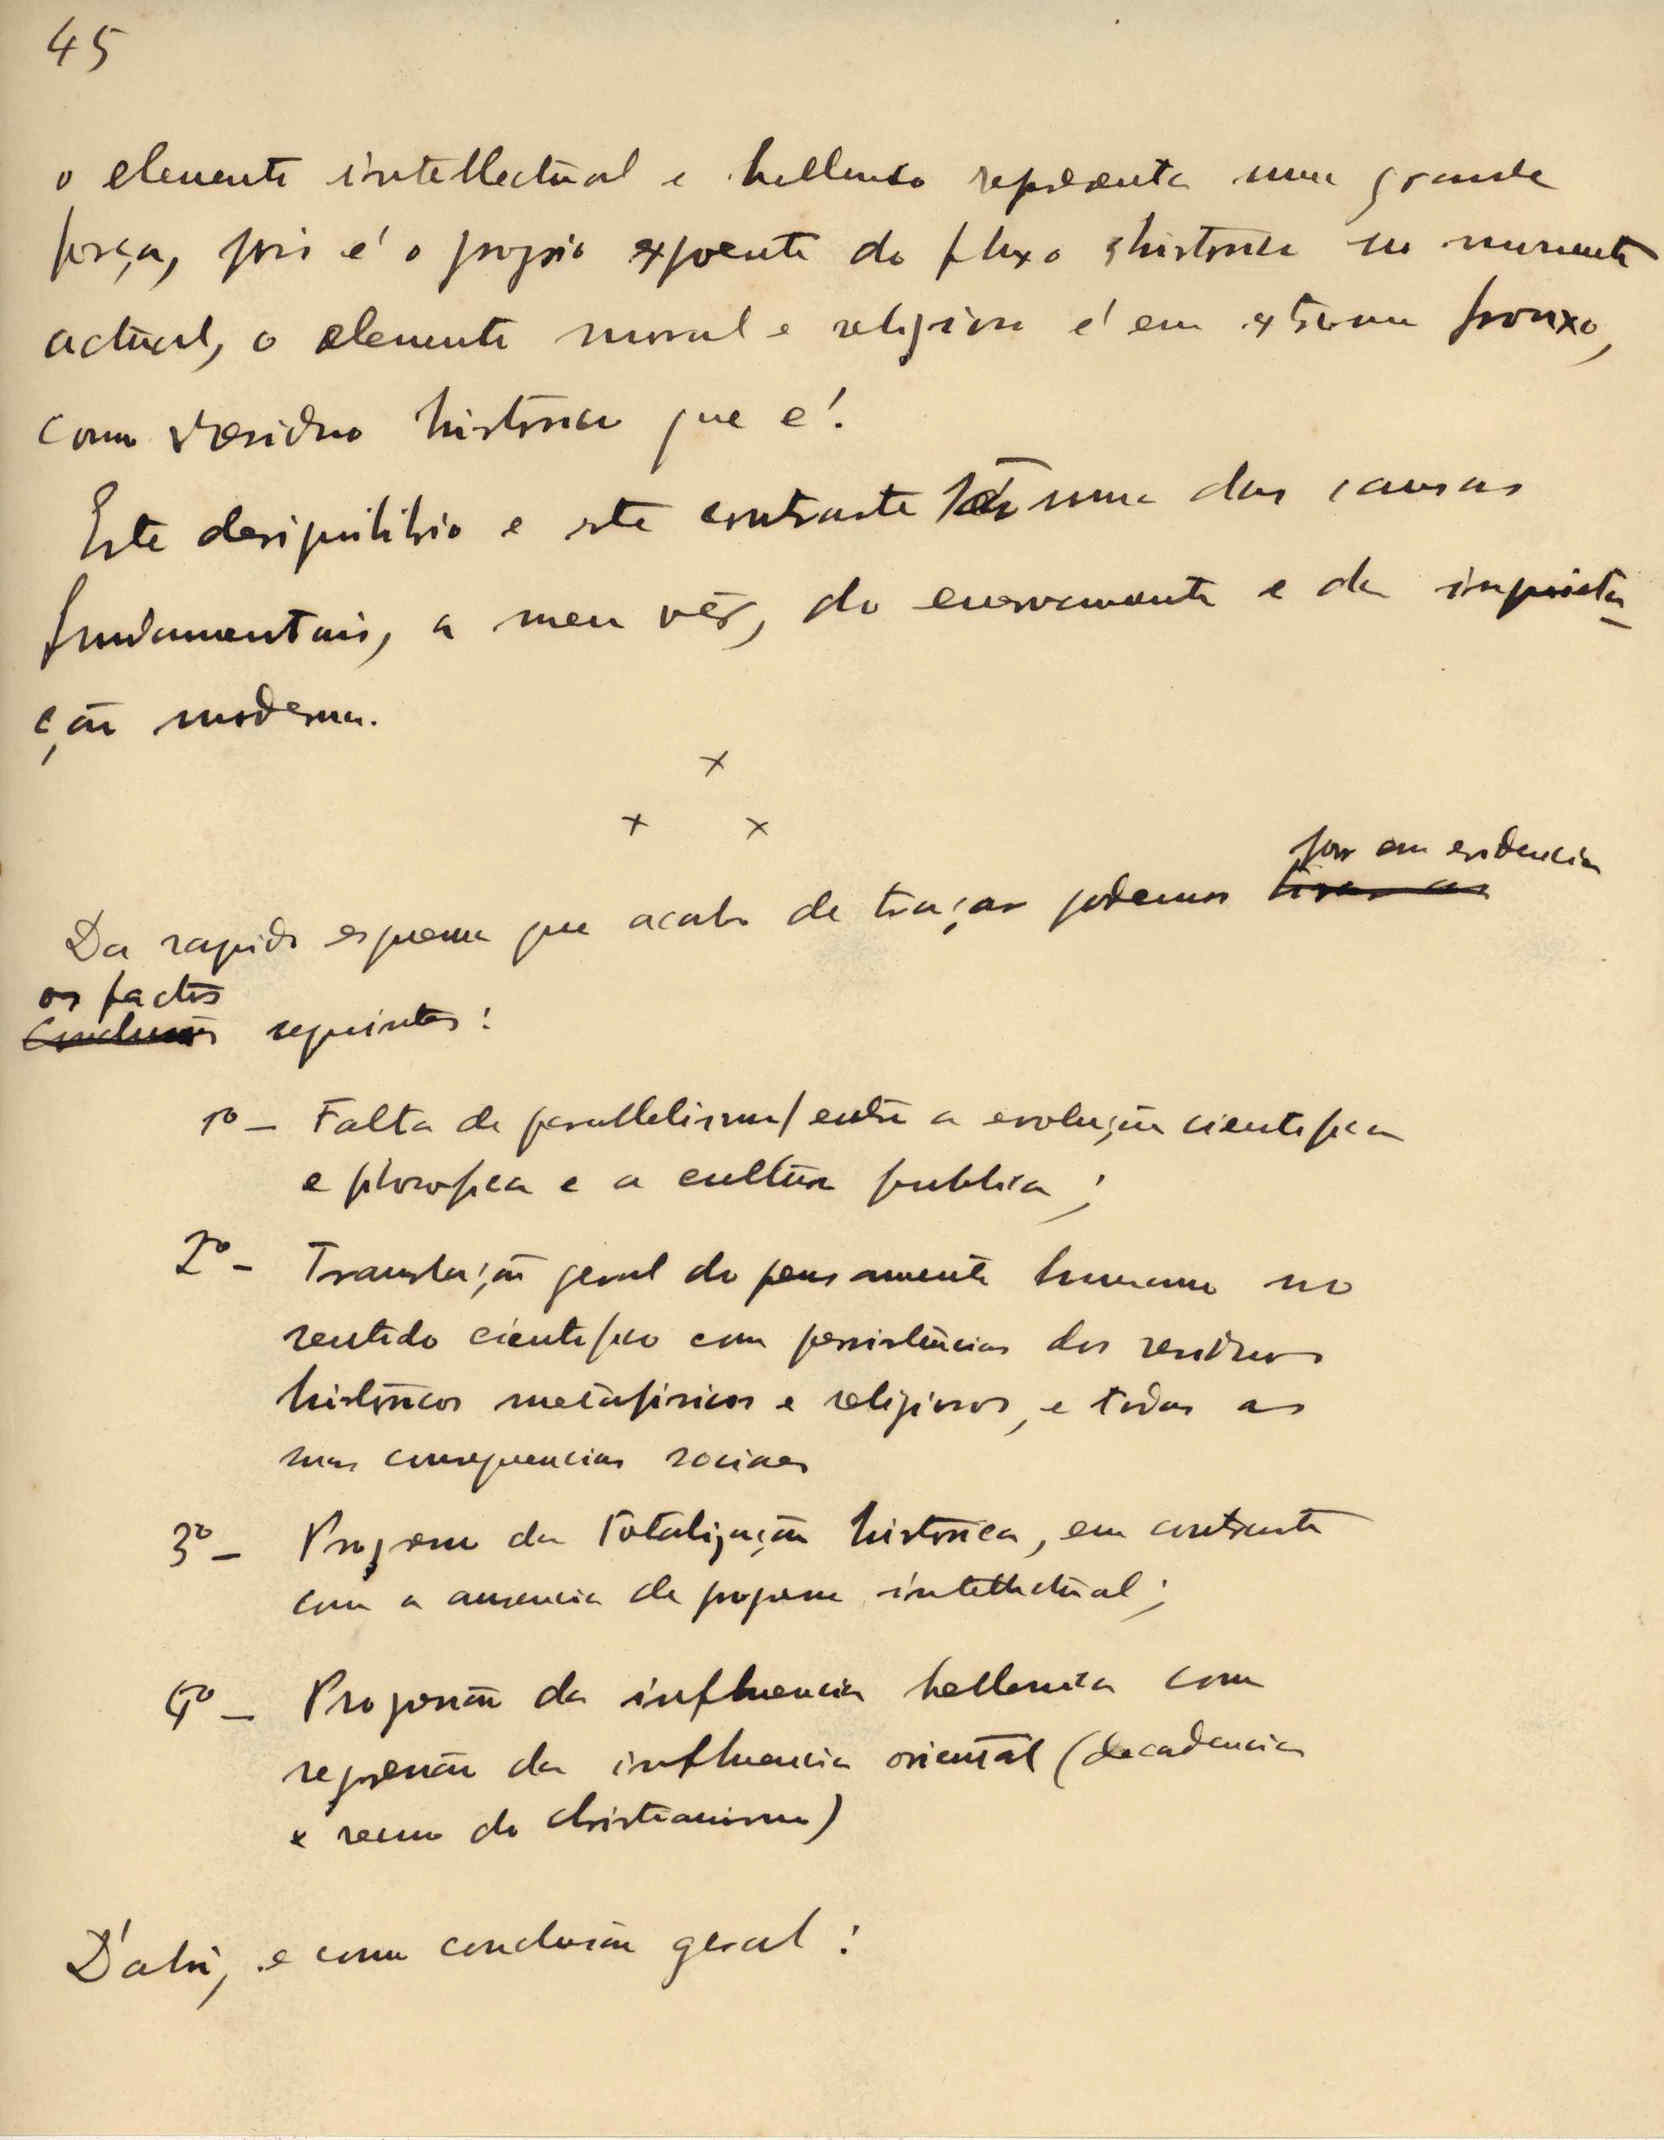 45
o elemento intellectual e hellenico representa uma grande
força, pois é o proprio expoente do fluxo historico no momento
actual, o elemento moral e religioso é em extremo frouxo,
como residuo historico que é.
Este desiquilibrio e este contraste são uma das causas
fundamentais, a meu vêr, do enervamento e da inquieta-
ção moderna.
x
x x
pôr em evidencia
Do rapido esquema que acabo de traçar podemos tirar as
os factos
conclusões seguintes:
1º — Falta de parallelismo entre a evolução cientifica
e filosofica e a cultura publica;
2º — Translação geral do pensamento humano no
sentido cientifico com persistencias dos residuos
historicos metafisicos e religiosos, e todas as
suas consequencias sociaes
3º — Progresso da totalização historica, em contraste
com a ausencia de progresso intellectual;
4º — Progressão da influencia hellenica com
regressão da influencia oriental (decadencia
e recuo do christianismo)
D'ahi, e como conclusão geral: